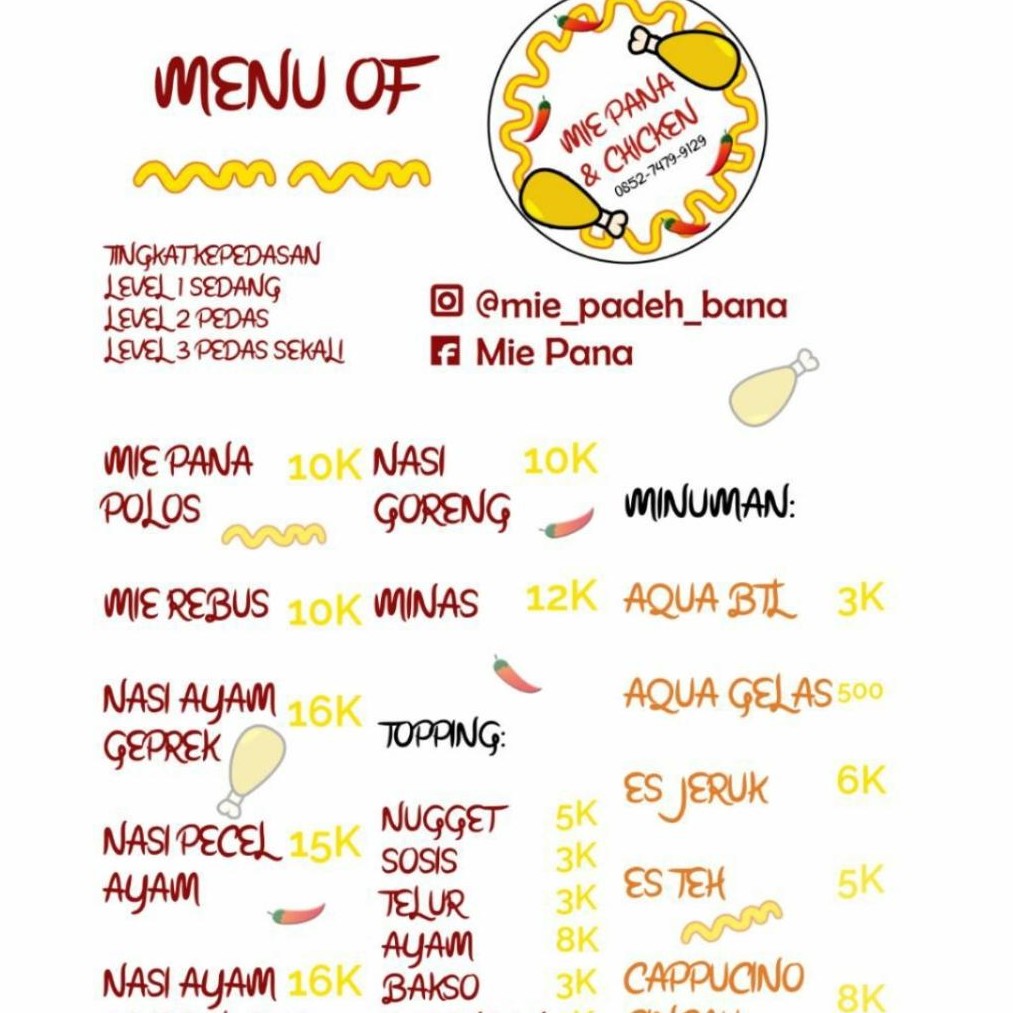 MENU OF
MIE PANA
& CHICKEN
0852-7479-9129
TINGKAT KEPEDASAN
LEVEL 1 SEDANG
LEVEL 2 PEDAS
LEVEL 3 PEDAS SEKALI
@mie_padeh_bana
Mie Pana
MIE PANA 10K
POLOS
MIE REBUS 10K
NASI AYAM 16K
GEPREK
NASI PECEL 15K
AYAM
NASI AYAM 16K
NASI 10K
GORENG
MINAS 12K
TOPPING:
NUGGET 5K
SOSIS 3K
TELUR 3K
AYAM 8K
BAKSO 3K
MINUMAN:
AQUA BTL 3K
AQUA GELAS 500
ES JERUK 6K
ES TEH 5K
CAPPUCINO
8K